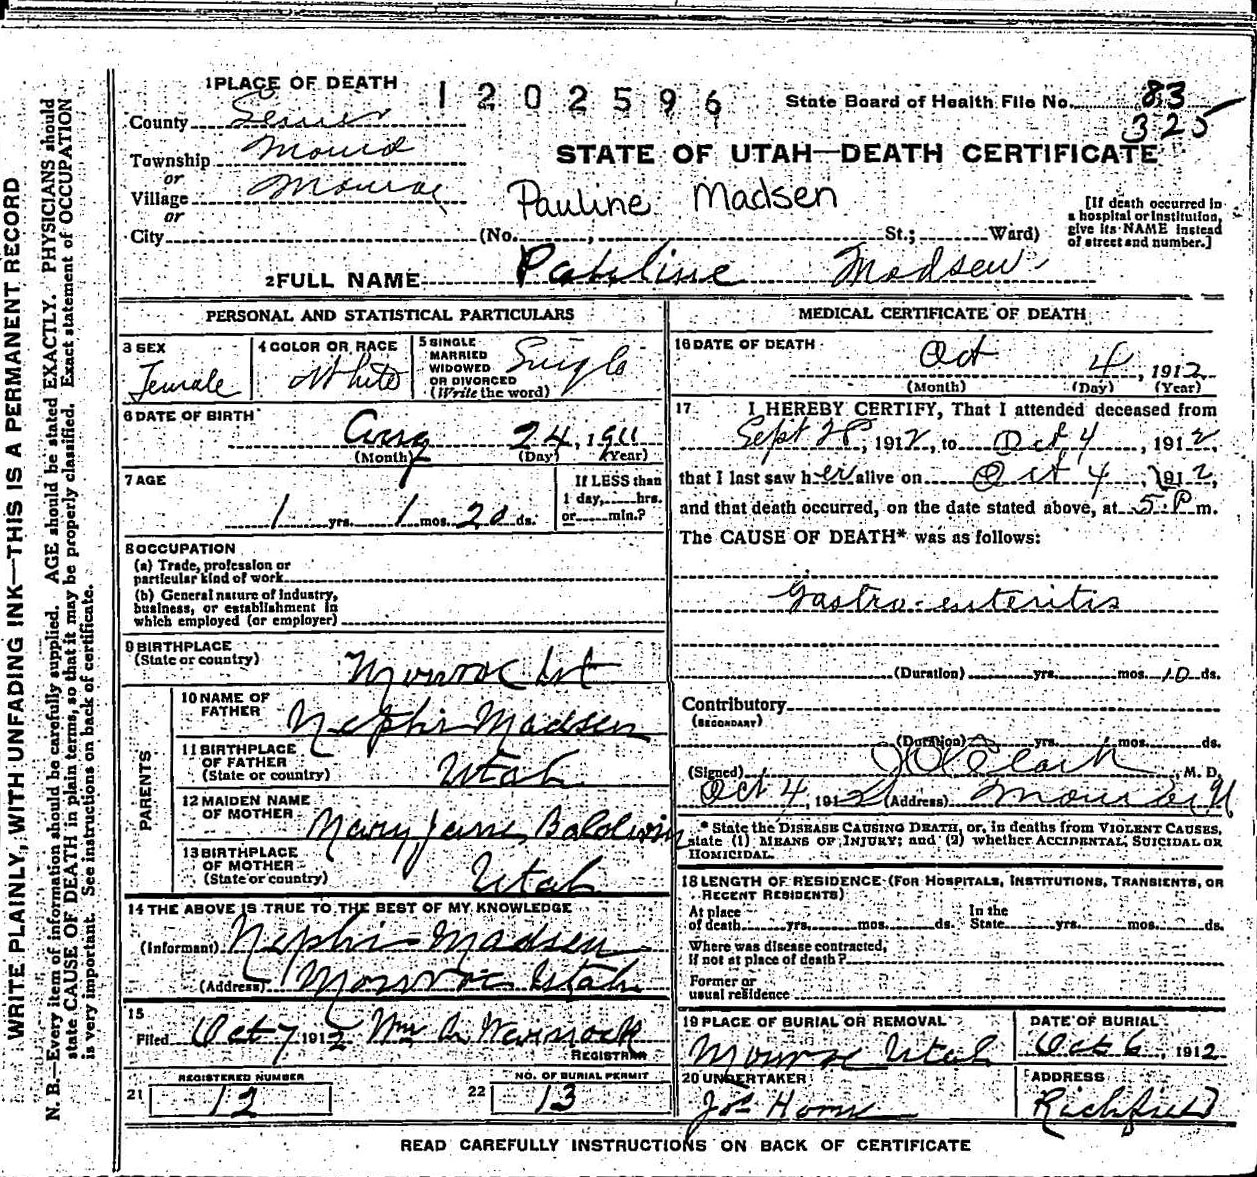 1 PLACE OF DEATH
1202596
State Board of Health File No. 83
325
County Sevier
Township Monroe
or
Village Monroe
or
City
STATE OF UTAH—DEATH CERTIFICATE
Pauline Madsen
(No. , St.; Ward)
[If death occurred in
a hospital or institution,
give its NAME instead
of street and number.]
2 FULL NAME Pauline Madsen
PERSONAL AND STATISTICAL PARTICULARS
3 SEX
Female
4 COLOR OR RACE
White
5 SINGLE
MARRIED
WIDOWED
OR DIVORCED
(Write the word)
Single
6 DATE OF BIRTH
Aug 24, 1911
(Month) (Day) (Year)
7 AGE
1 yrs. 1 mos. 20 ds.
If LESS than
1 day, hrs.
or min.?
8 OCCUPATION
(a) Trade, profession or
particular kind of work
(b) General nature of industry,
business, or establishment in
which employed (or employer)
9 BIRTHPLACE
(State or country)
Monroe Ut
PARENTS
10 NAME OF
FATHER
Nephi Madsen
11 BIRTHPLACE
OF FATHER
(State or country)
Utah
12 MAIDEN NAME
OF MOTHER
Mary Jane Baldwin
13 BIRTHPLACE
OF MOTHER
(State or country)
Utah
14 THE ABOVE IS TRUE TO THE BEST OF MY KNOWLEDGE
(Informant) Nephi Madsen
(Address) Monroe Utah
15
Filed Oct 7 1912 Wm A Warnock
REGISTRAR
REGISTERED NUMBER
21 12
NO. OF BURIAL PERMIT
22 13
MEDICAL CERTIFICATE OF DEATH
16 DATE OF DEATH
Oct 4, 1912
(Month) (Day) (Year)
17 I HEREBY CERTIFY, That I attended deceased from
Sept 28, 1912, to Oct 4, 1912
that I last saw her alive on Oct 4, 1912,
and that death occurred, on the date stated above, at 5 P m.
The CAUSE OF DEATH* was as follows:
Gastro-enteritis
(Duration) yrs. mos. 10 ds.
Contributory
(SECONDARY)
(Duration) yrs. mos. ds.
(Signed) Clark, M. D.
Oct 4, 1912 (Address) Monroe U
* State the DISEASE CAUSING DEATH, or, in deaths from VIOLENT CAUSES,
state (1) MEANS OF INJURY; and (2) whether ACCIDENTAL, SUICIDAL OR
HOMICIDAL.
18 LENGTH OF RESIDENCE (FOR HOSPITALS, INSTITUTIONS, TRANSIENTS, OR
RECENT RESIDENTS)
At place
of death yrs. mos. ds.
In the
State yrs. mos. ds.
Where was disease contracted,
if not at place of death?
Former or
usual residence
19 PLACE OF BURIAL OR REMOVAL
Monroe Utah
DATE OF BURIAL
Oct 6, 1912
20 UNDERTAKER
Jos Horne
ADDRESS
Richfield
READ CAREFULLY INSTRUCTIONS ON BACK OF CERTIFICATE
WRITE PLAINLY, WITH UNFADING INK—THIS IS A PERMANENT RECORD
N. B.—Every item of information should be carefully supplied. AGE should be stated EXACTLY. PHYSICIANS should
state CAUSE OF DEATH in plain terms, so that it may be properly classified. Exact statement of OCCUPATION
is very important. See instructions on back of certificate.